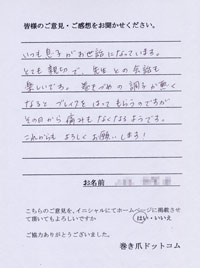 皆様のご意見・ご感想をお聞かせください。
いつも息子がお世話になっています。
とても親切で、先生との会話も
楽しいです。巻きづめの調子が悪く
なるとブレイスをはってもらうのですが
その日から痛みもなくなるようです。
これからもよろしくお願いします!
お名前
こちらのご意見を、イニシャルにてホームページに掲載させ
て頂いてもよろしいですか　はい・いいえ
ご協力ありがとうございました。
巻き爪ドットコム